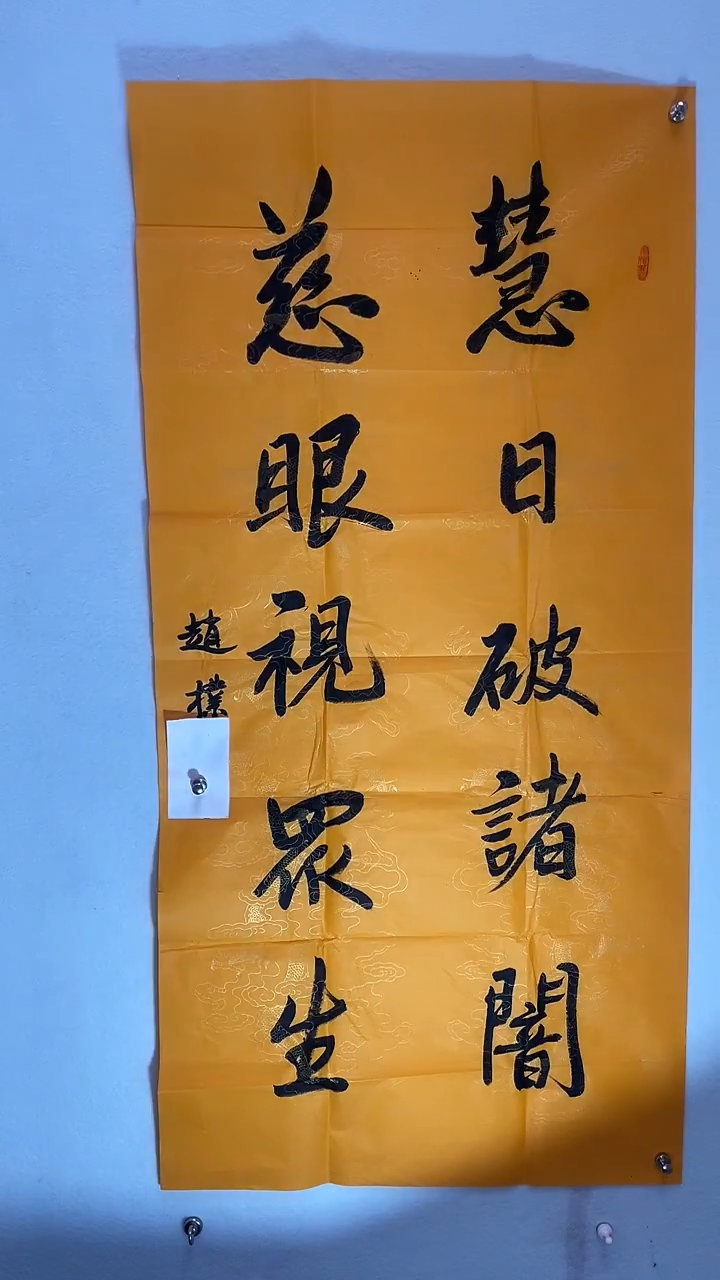 慧日破諸闇
慈眼視眾生
趙樸